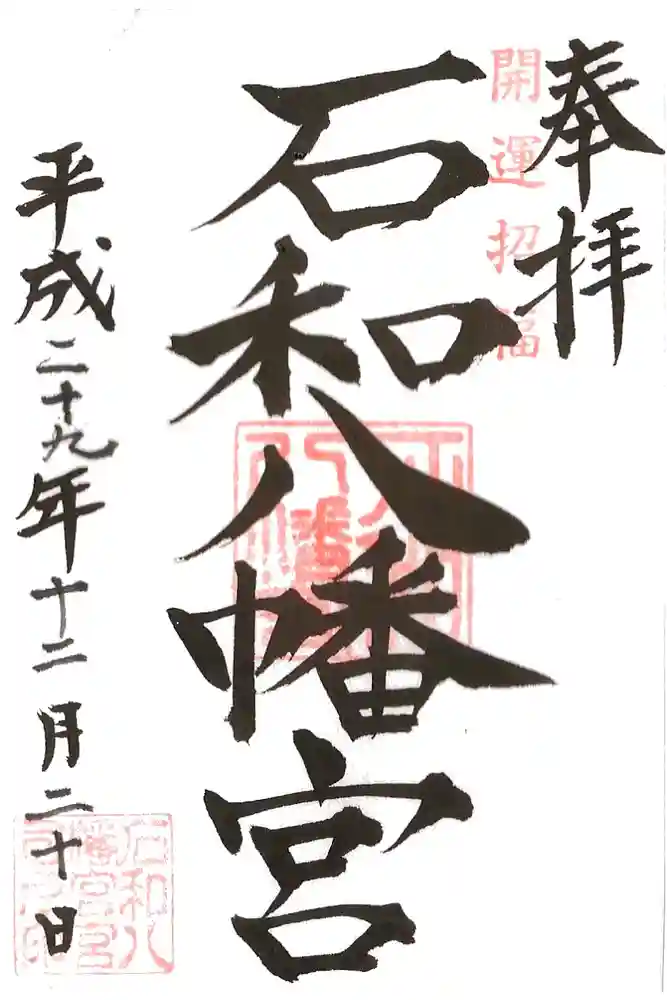 奉拝
開運招福
石和八幡宮
平成二十九年十二月二十日
石和八
幡宮宮